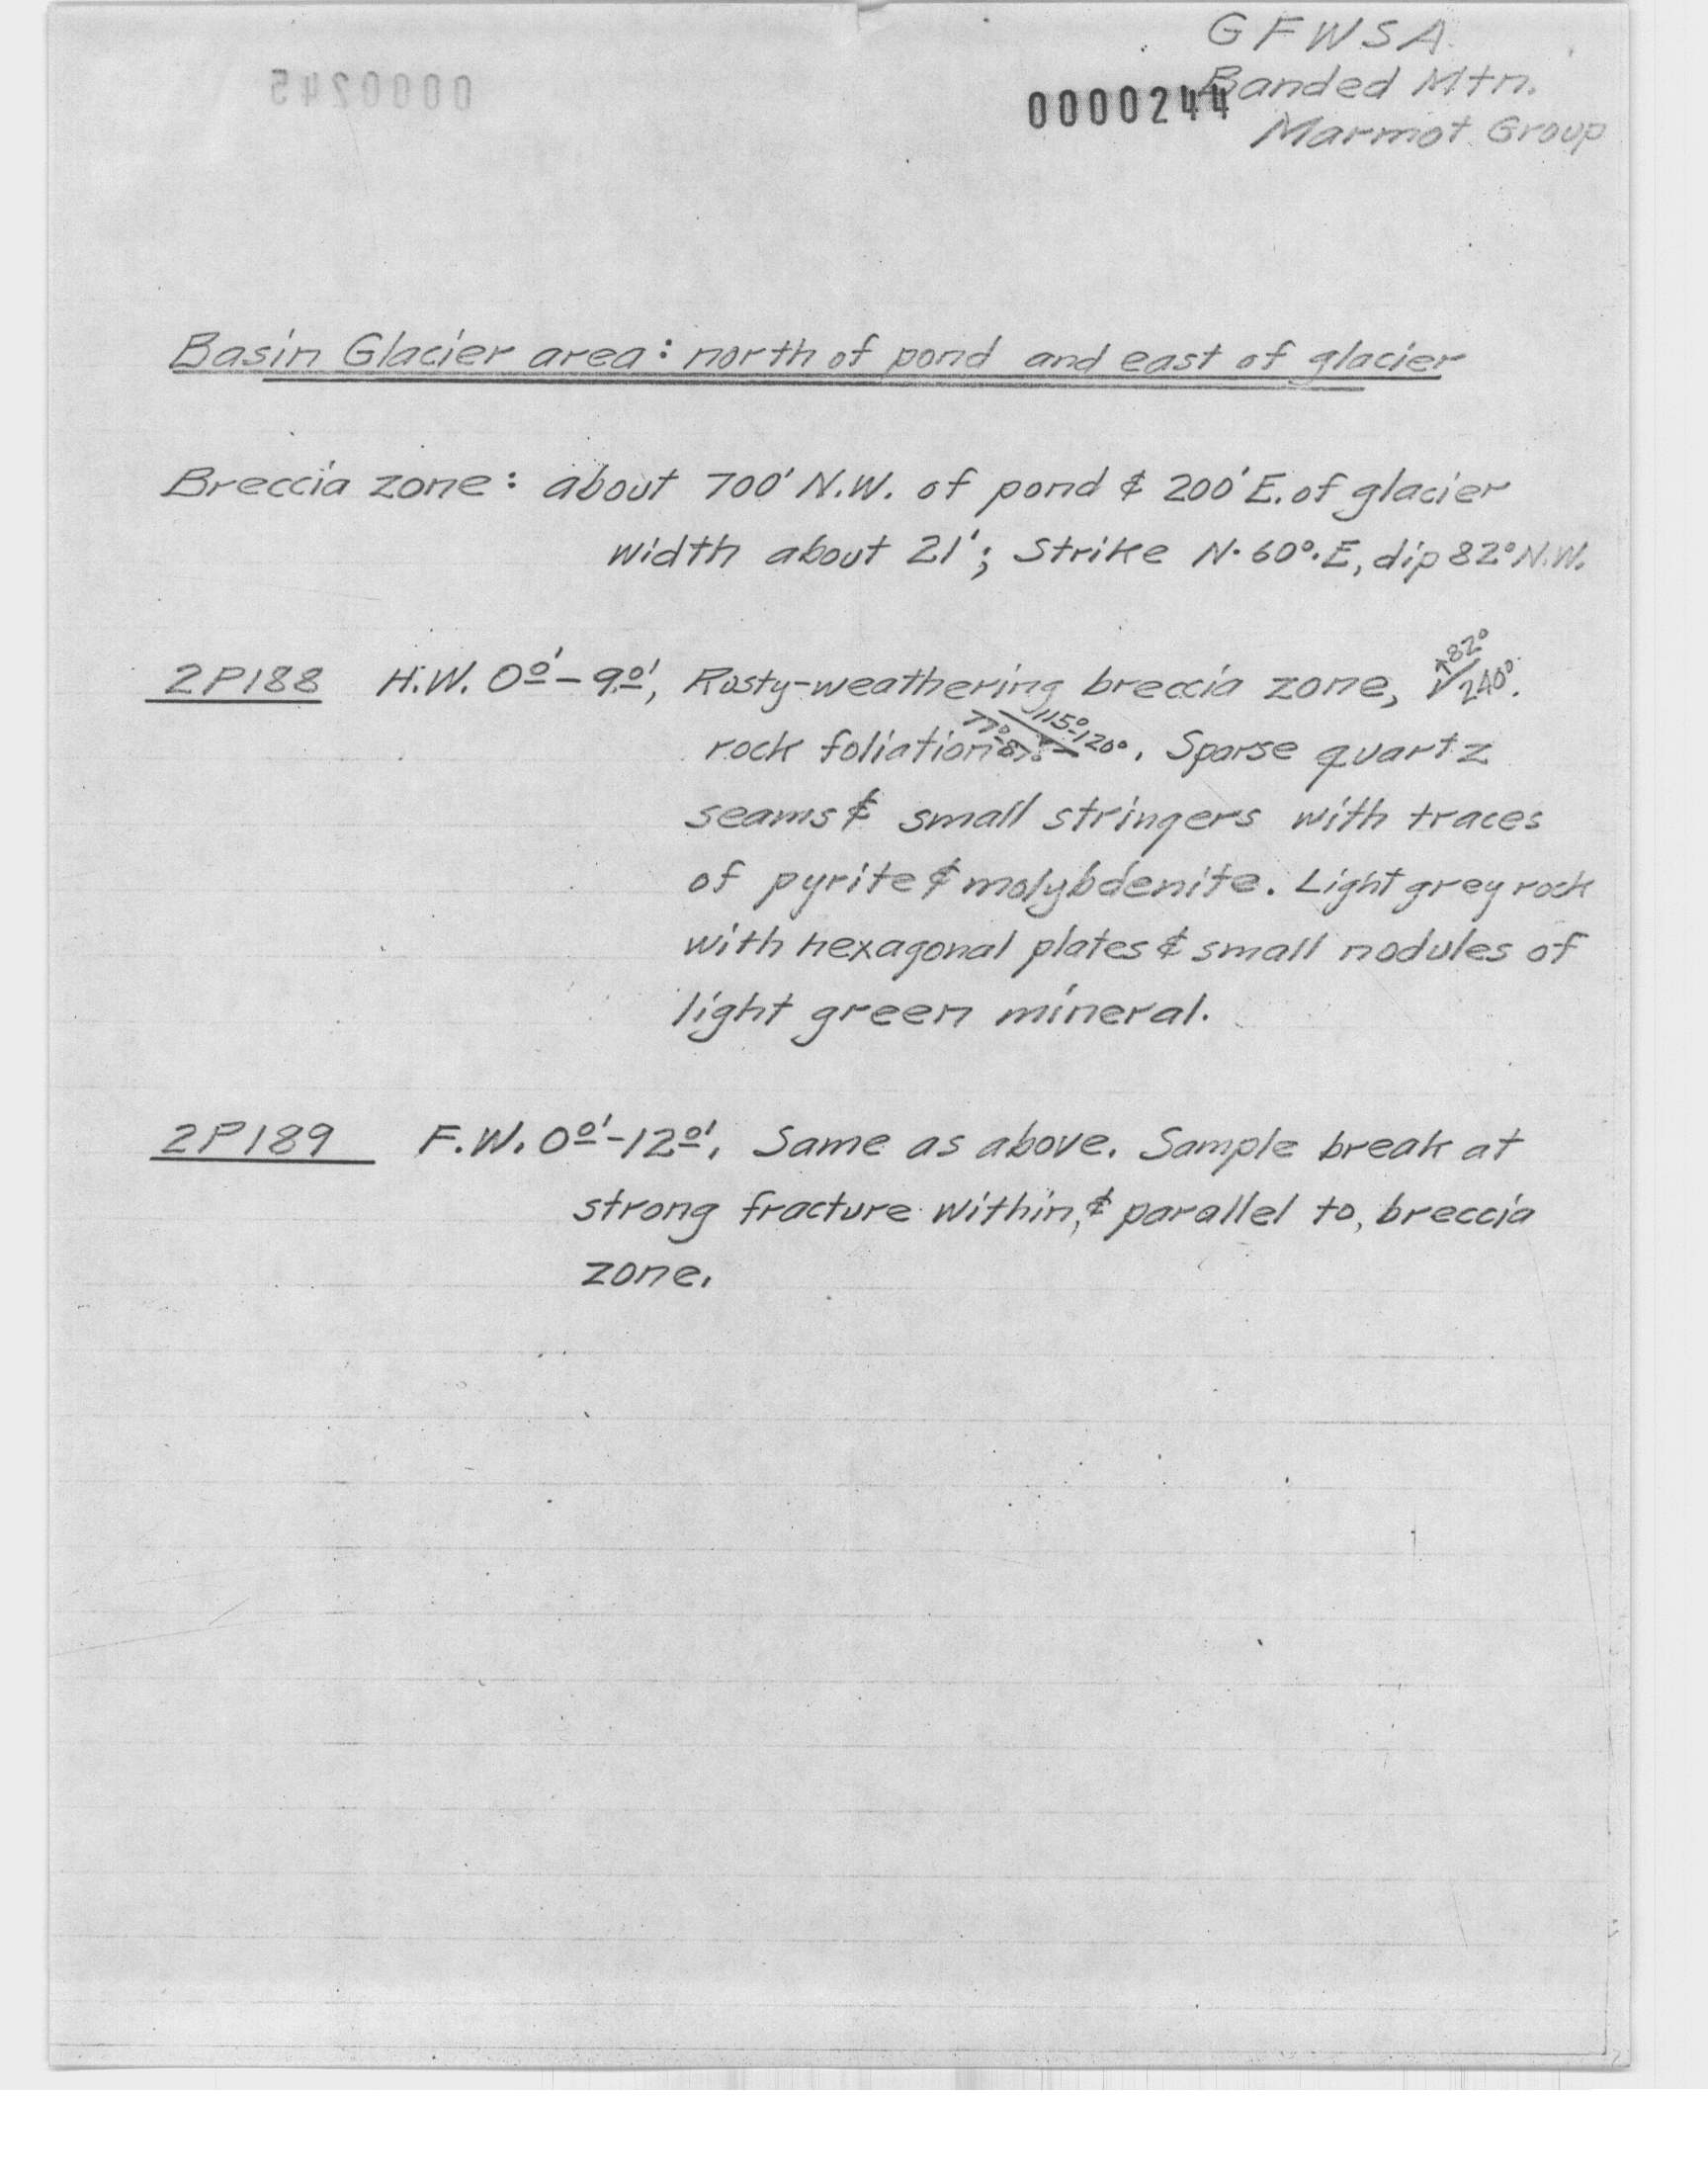 GFWSA
Banded Mtn.
0000244
Marmot Group
0000245
Basin Glacier area: north of pond and east of glacier
Breccia zone: about 700' N.W. of pond & 200' E. of glacier
width about 21'; Strike N. 60°. E, dip 82° N.W.
2P188 H.W. 0.0' – 9.0', Rusty-weathering breccia zone, 82° 240°.
rock foliation 115°-120°. Sparse quartz
seams & small stringers with traces
of pyrite & molybdenite. Light grey rock
with hexagonal plates & small nodules of
light green mineral.
2P189 F.W. 0.0' – 12.0', Same as above. Sample break at
strong fracture within, & parallel to, breccia
zone.